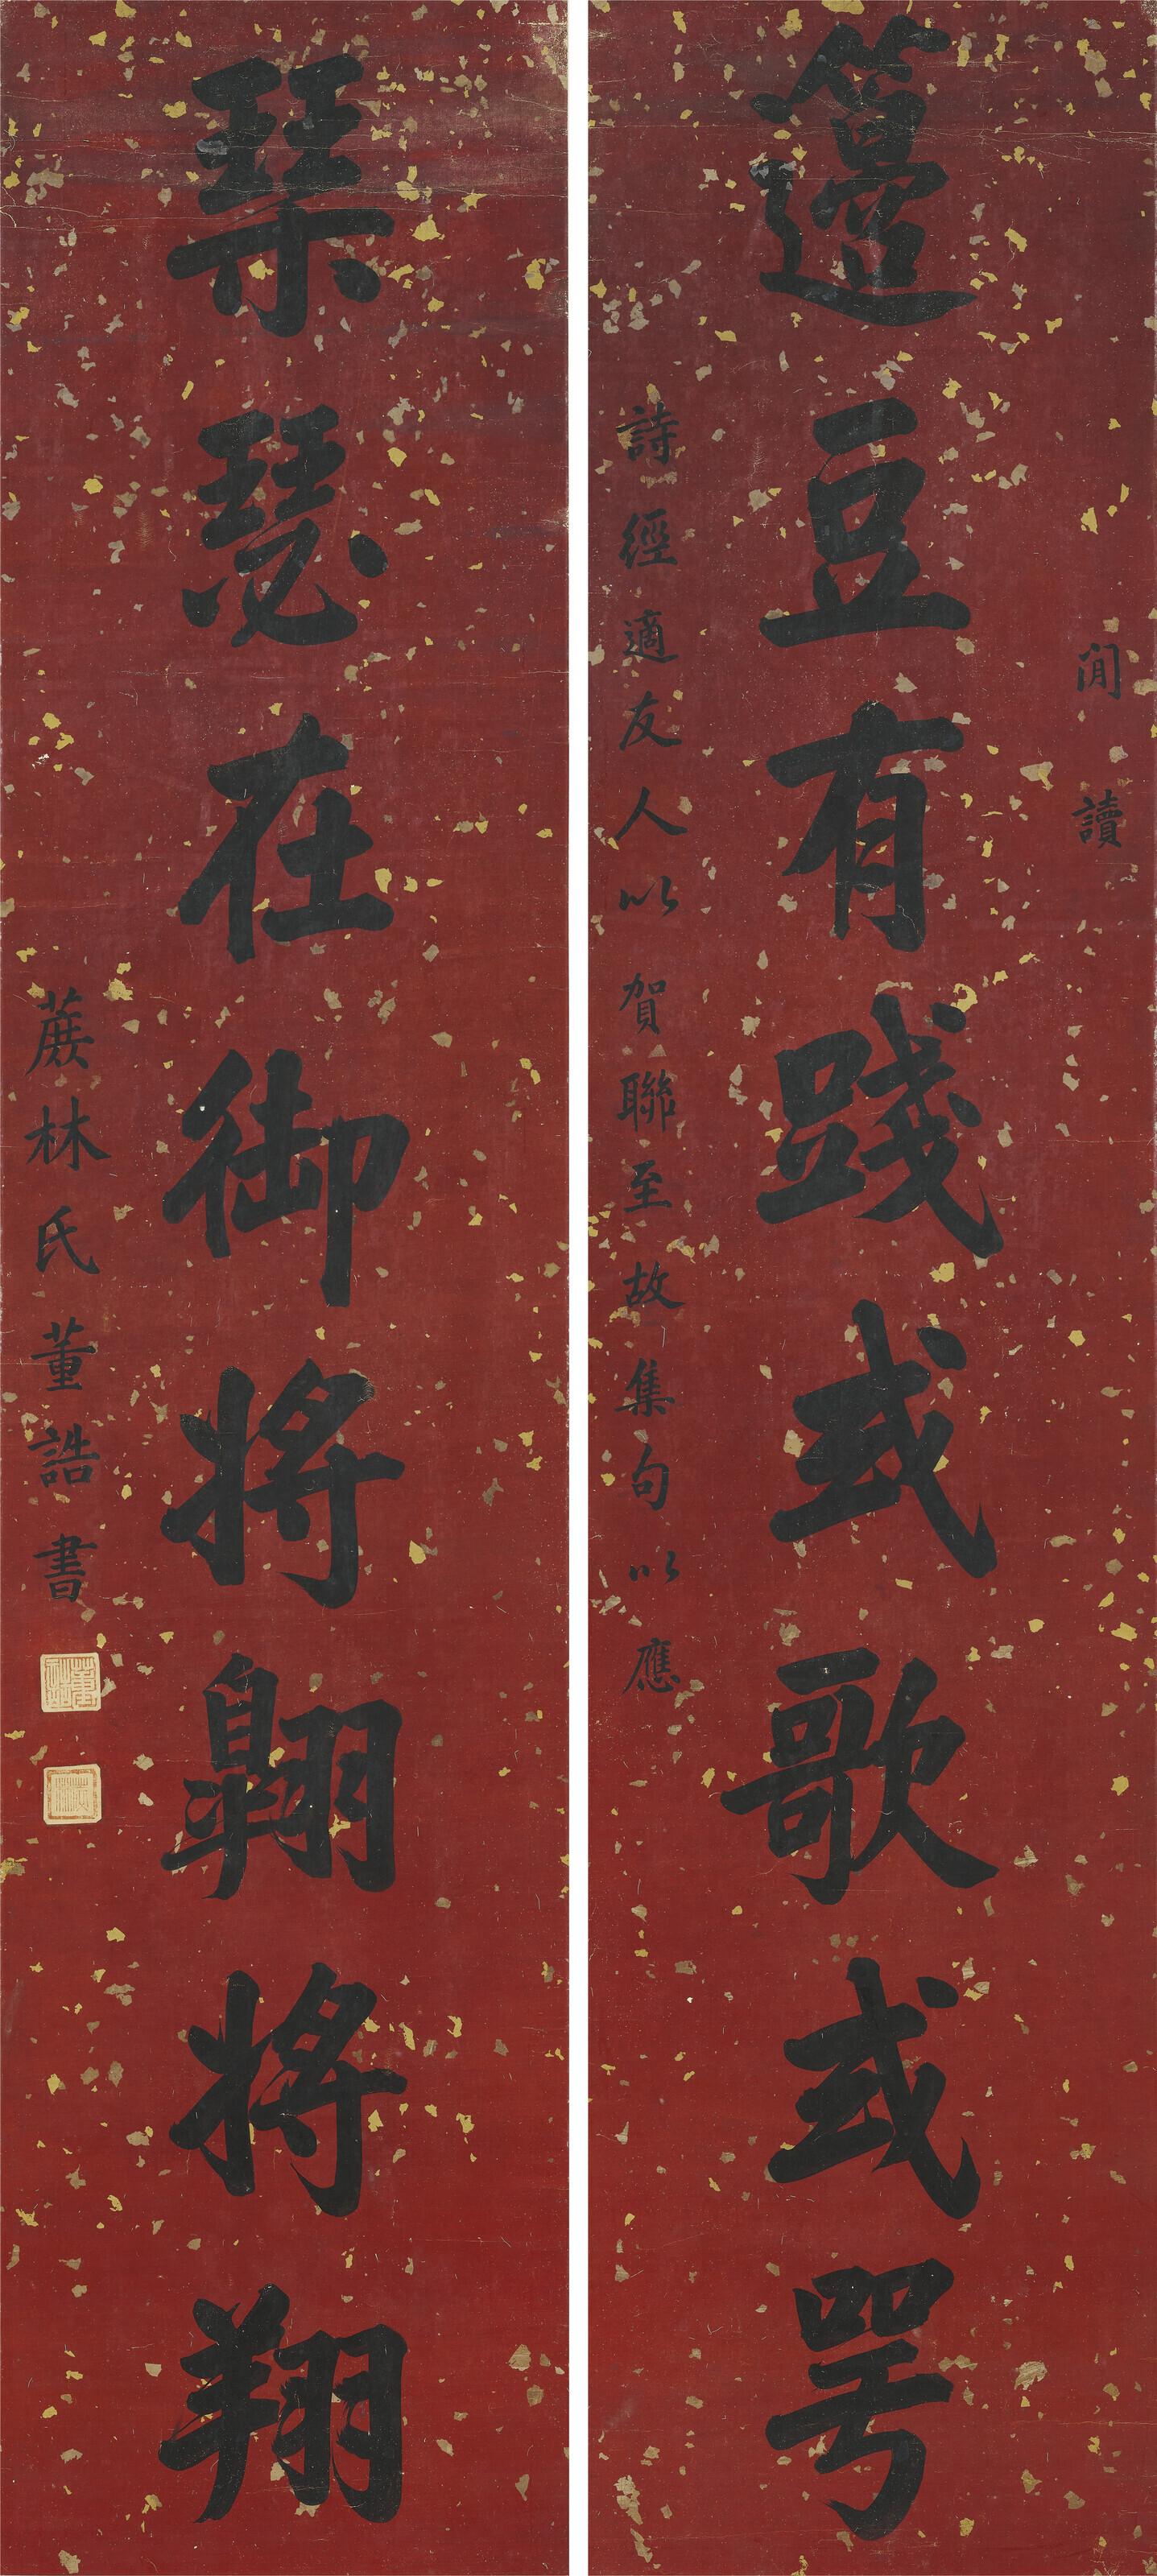 閒讀
籩豆有踐或歌或咢
詩經適友人以賀聯至故集句以應
琴瑟在御將翱將翔
蔗林氏董誥書
董誥